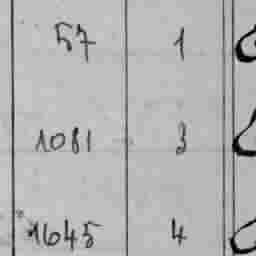 57 1
1081 3
1645 4